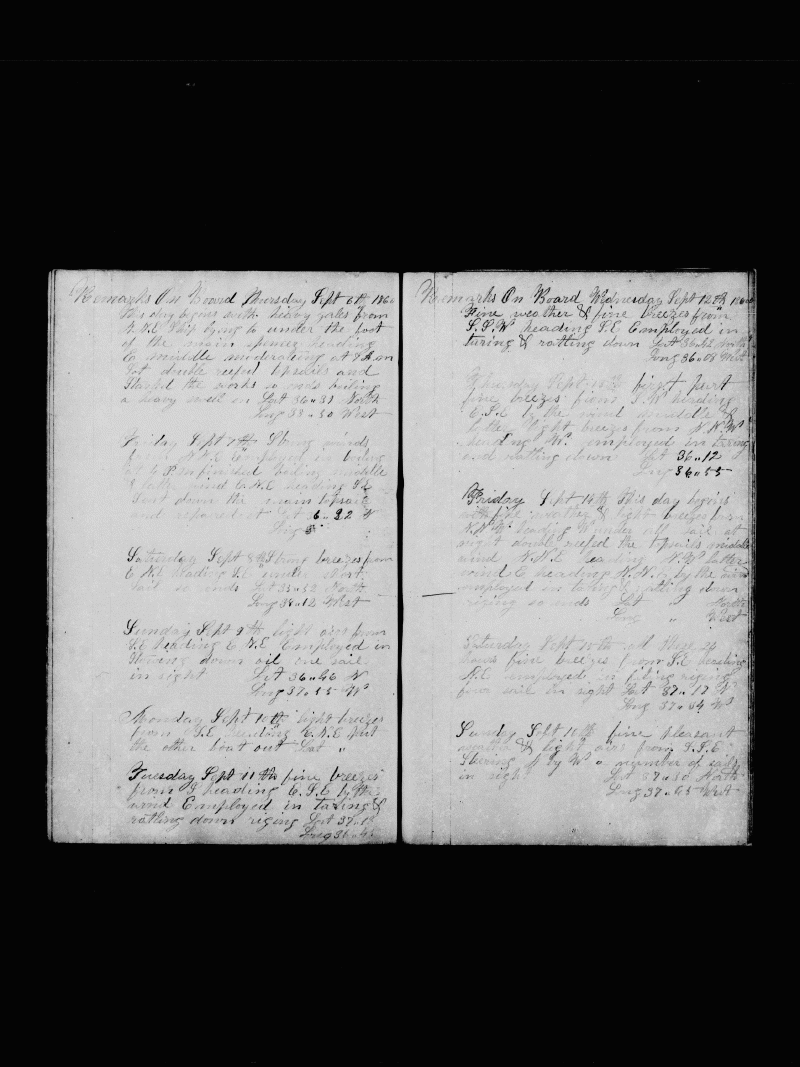 Remarks On Board Thursday Sept 6th 1860
This day begins with heavy gales from
N.E Ship lying to under the foot
of the main spencer heading
E middle moderating at 7 A.m
Sot double reefed topsails and
Started the works so ends boiling
a heavy swell on Lat 36..31 North
Long 38..50 West
Friday Sept 7th Strong winds
from N.N.E Employed in boiling
at 6 P.m finished boiling middle
& latter wind E.N.E heading S.E
Sent down the main topsail
and repaired it Lat 6..32 N
Long
Saturday Sept 8th Strong breezes from
E.N.E heading S.E under short
sail so ends Lat 35..52 North
Long 38..12 West
Sunday Sept 9th light airs from
S.E heading E.N.E Employed in
Stowing down oil one sail
in sight Lat 36..46 N
Long 37..55 W
Monday Sept 10th light breezes
from S.E heading E.N.E put
the other boat out Lat "
Tuesday Sept 11th fine breezes
from S heading E.S.E by the
wind Employed in taring &
ratling down riging Lat 37..18
Long 36..45
Remarks On Board Wednesday Sept 12th 1860
Fine weather & fine breezes from
S.S.W heading S.E Employed in
taring & ratling down Lat 36..42 North
Long 36..08 West
Thursday Sept 13th first part
fine breezes from S.W heading
E.S.E by the wind middle &
latter light breezes from N.N.W
heading W. employed in taring
and ratling down Lat 36..12
Long 36..55
Friday Sept 14th This day begins
with fine weather & light breezes from
N.N.E heading W under all sail at
night double reefed the topsails middle
wind N.N.E heading N.W latter
wind E heading N.N.E by the wind
employed in taring & ratling down
riging so ends Lat " North
Long " West
Saturday Sept 15th all these 24
hours fine breezes from S.E heading
N.E employed in fiting riging
four sail in sight Lat 37..17 N
Long 37..54 W
Sunday Sept 16th fine pleasant
weather & light airs from S.S.E
Steering N by W a number of sails
in sight Lat 37..50 North
Long 37..55 West